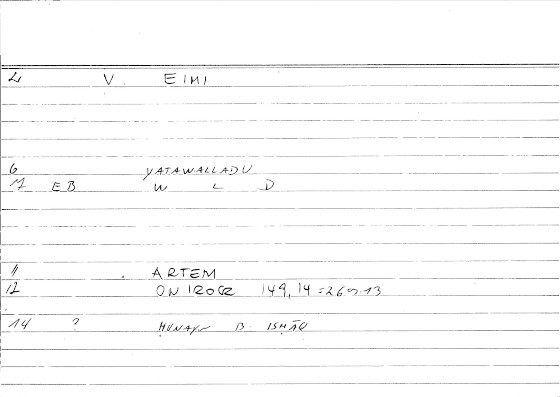 2 V. EIMI
6 YATAWALLADU
7 EB W L D
11 . ARTEM
12 ON 149, 14 = 269.13
14 ? ḤUNAYN B. ISḤĀQ